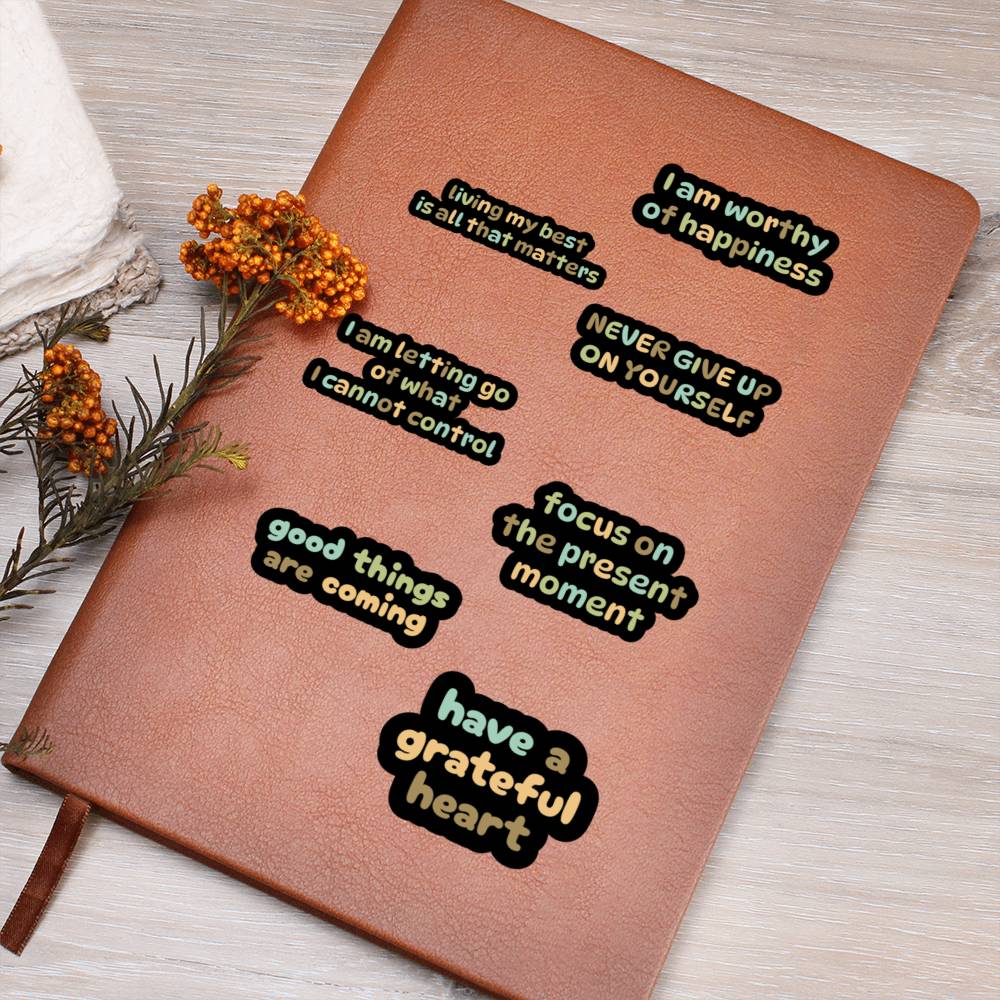 living my best
is all that matters
I am worthy
of happiness
I am letting go
of what
I cannot control
NEVER GIVE UP
ON YOURSELF
good things
are coming
focus on
the present
moment
have a
grateful
heart